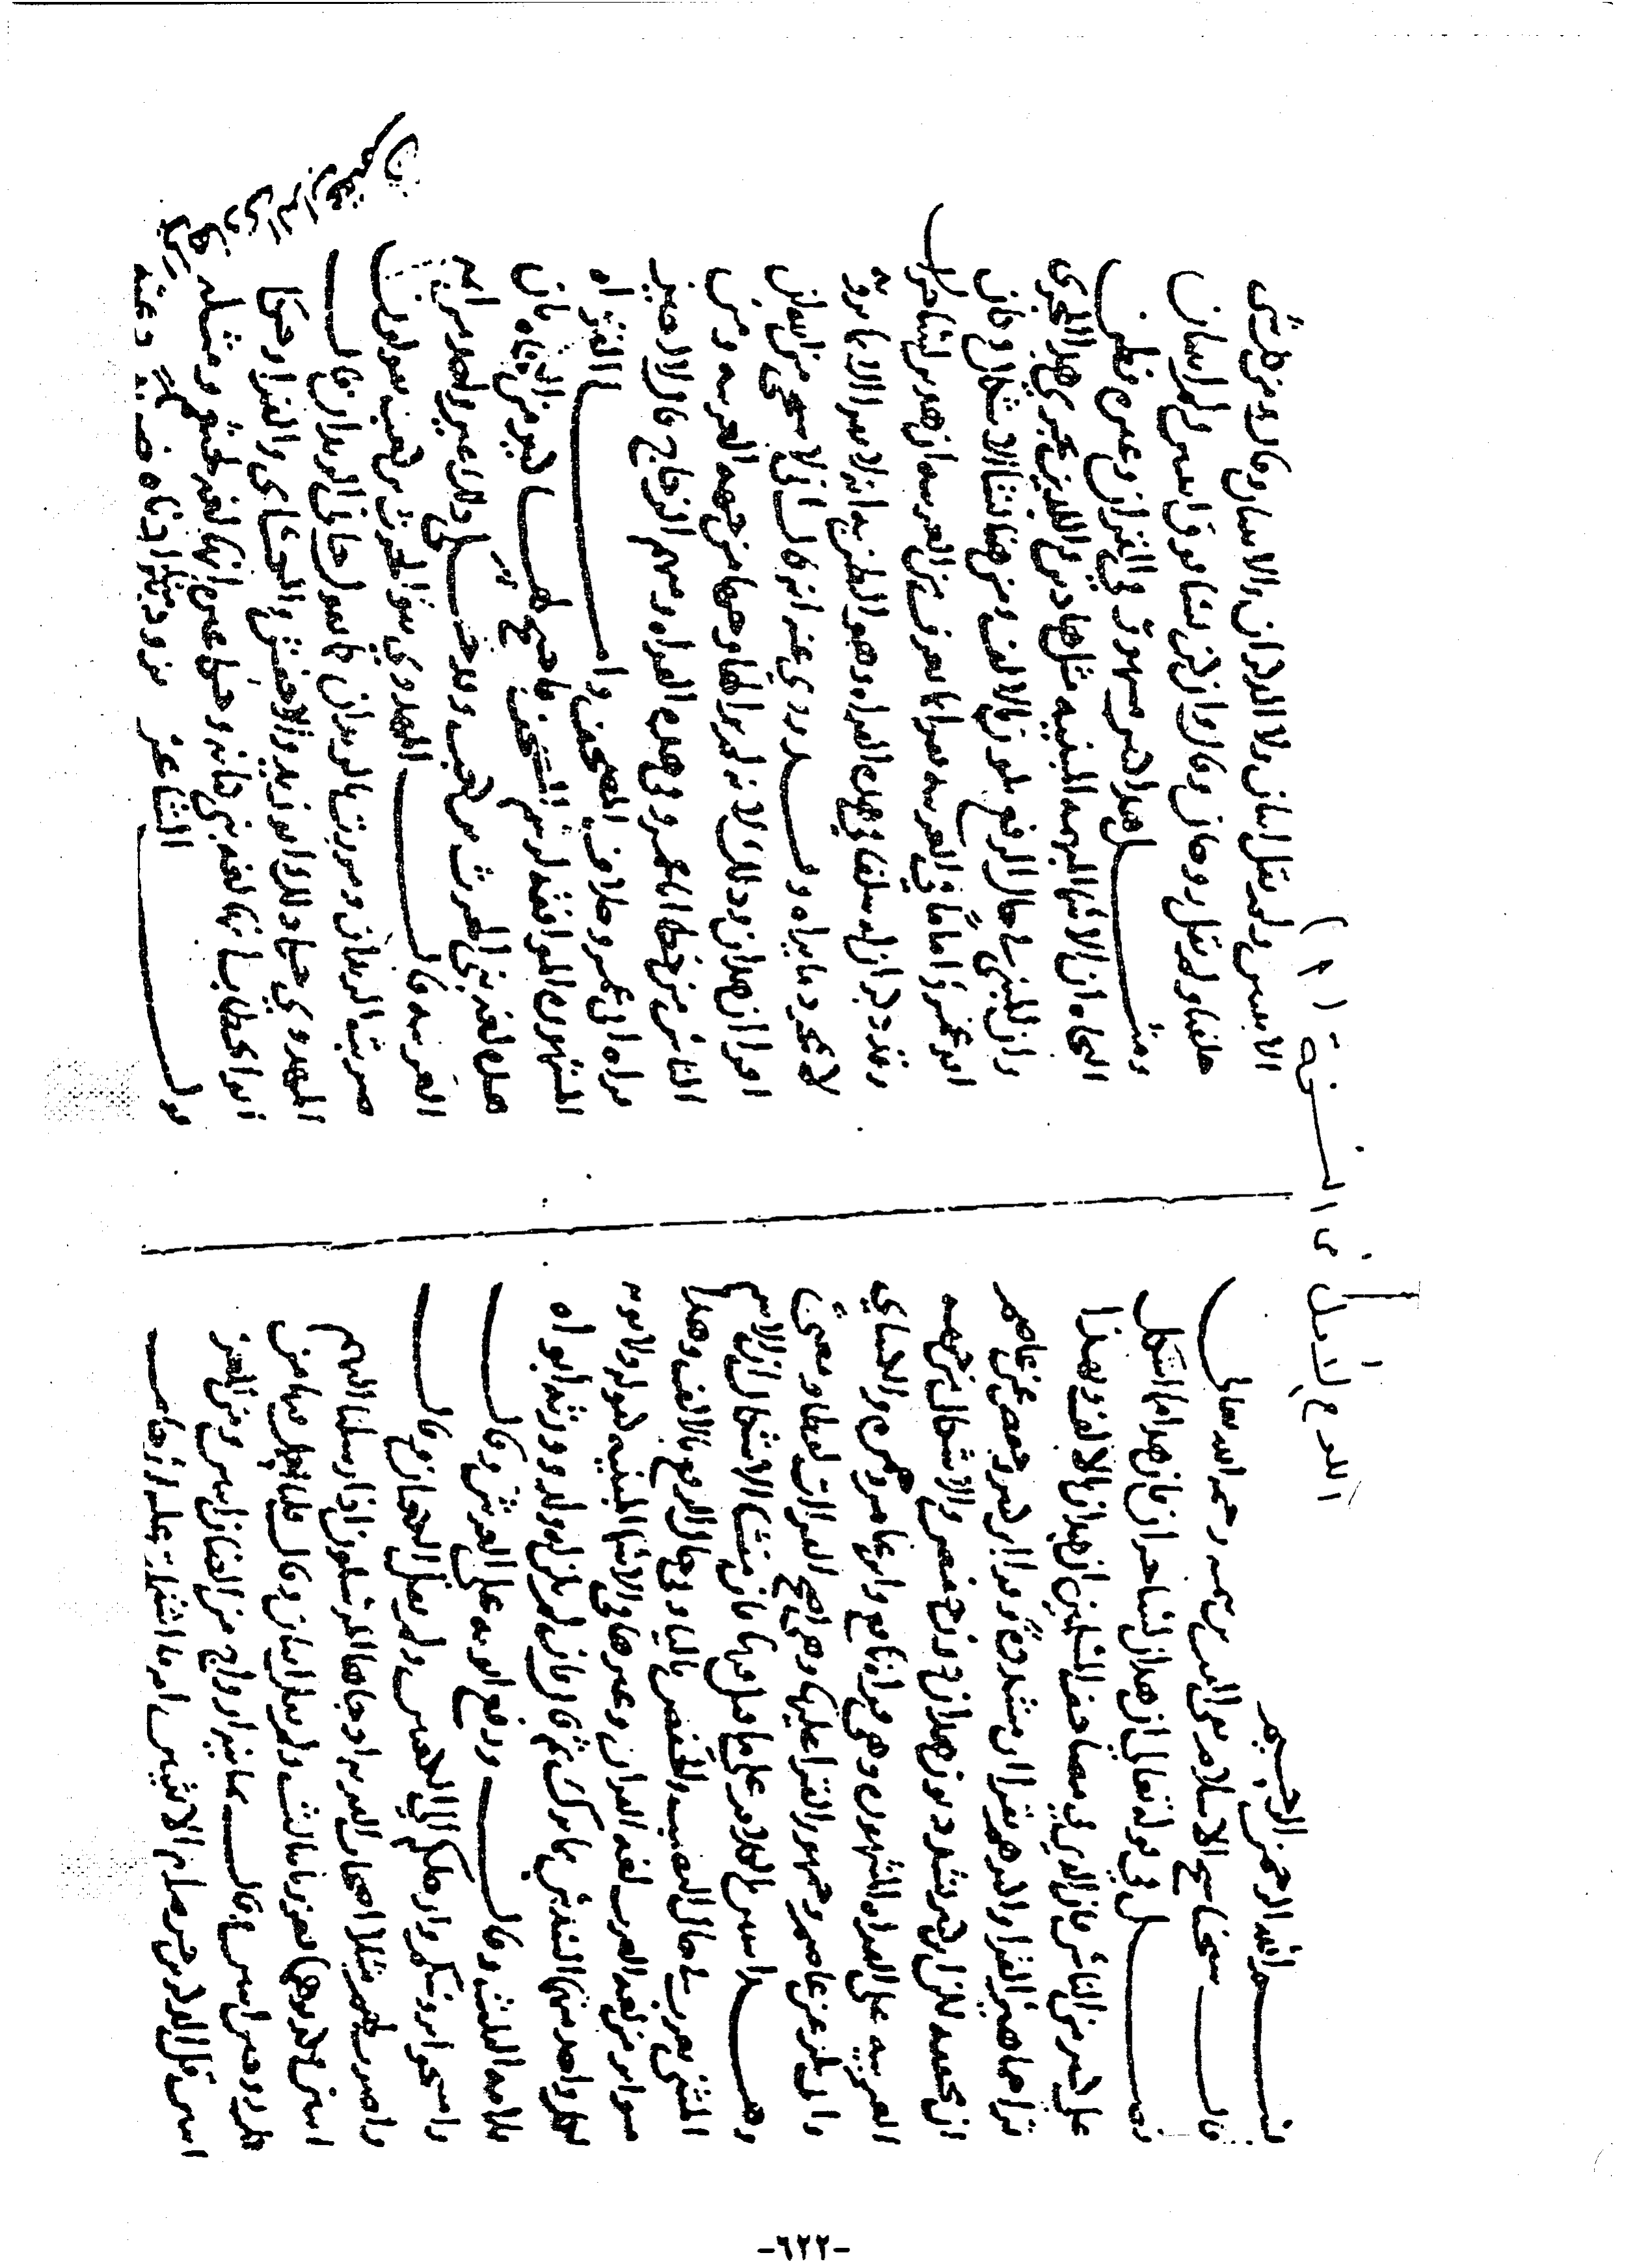 اللوح الأول من النسخة
بسم الله الرحمن الرحيم
قال شيخنا شيخ الاسلام تقي الدين بن تيميه رحمه الله تعالى
فصل في قوله تعالى ان هذان لساحران فان هذا مما اشكل
على كثير من الناس فان الذي في مصاحف المسلمين ان هذان بالالف وبهذا
قرا جماهير القراء واكثرهم يقرا ان مشددة وقرا ابن كثير وحفص عن عاصم
ان مخففه لكن ابن كثير يشدد نون هذان دون حفص والاشكال من جهه
العربيه على القراه المشهوره وهي قراه نافع وابن عامر وحمزه والكسائي
وابي بكر عن عاصم وجمهور القرا عليها وهي اصح القرات لفظا ومعنى
وهذا يتبين بالكلام على ما قيل فيها فان منشا الاشكال ان الاسم
المثنى يعرب في حال النصب والخفض باليا وفي حال الرفع بالالف وهذا
متواتر من لغه العرب لغه القران وغيرها في الاسما المبنيه كقوله ولابويه
لكل واحد منهما السدس مما ترك ثم قال فان لم يكن له ولد وورثه ابواه
فلامه الثلث وقال ورفع ابويه على العرش وقال
وامسحوا بروسكم وارجلكم الى الكعبين ولم يقل الكعبان وقال
واضرب لهم مثلا اصحاب القريه اذ جاها المرسلون اذ ارسلنا اليهم
اثنين فكذبوهما فعززنا بثالث ولم يقل اثنان وقال قلنا احمل فيها من
كل زوجين اثنين وقال ثمانيه ازواج من الضان اثنين ومن المعز
اثنين قل الذكرين حرم ام الانثيين اما اشتملت عليه ارحام
الانثيين ولم يقل اثنان ولا الذكران ولا الانثيان وقال ومن كل شي
خلقنا زوجين ولم يقل زوجان وقال فان كن نسا فوق اثنتين ولم يقل اثنتان
ومثل هذا كثير مشهور في القران وغيره فظن
النحاه ان الاسما المبهمه المبنيه مثل هاذين واللذين تجري هذا المجرى
وان المبني في حال الرفع يكون بالالف ومن هنا نشا الاشكال وكان
ابو عمرو اماما في العربيه فقرا بما يعرف من العربيه ان هذين لساحران
وقد ذكر ان له سلفا في هذه القراه وهو الظن به انه لا يقرا الا بما يرويه
لا بمجرد ما يراه وقد روي عنه انه قال اني لاستحي من الله ان
اقرا ان هذان وذلك لانه لم ير لها وجها من جهه العربيه ومن
الناس من خطا ابا عمرو في هذه القراه ومنهم الزجاج قال لا اجيز
قراه ابي عمرو خلاف المصحف واما القراه
المشهوره الموافقه لرسم المصحف فاحتج لها كثير من النحاه بان
هذه لغه بني الحرث بن كعب وقد حكى ذلك غير واحد من ائمه
العربيه قال المهدوي بنو الحرث بن كعب يقولون
ضربت الزيدان ومررت بالزيدان كما يقول جاني الزيدان قال
المهدوي حكى ذلك ابو زيد والاخفش والكسائي والفرا وحكى
ابو الخطاب انها لغه بني كنانه وحكى غيره انها لغه لخثعم ومثله
قول الشاعر تزود منا بين اذناه ضربة دعته
التراب عقيم
-٦٢٢-